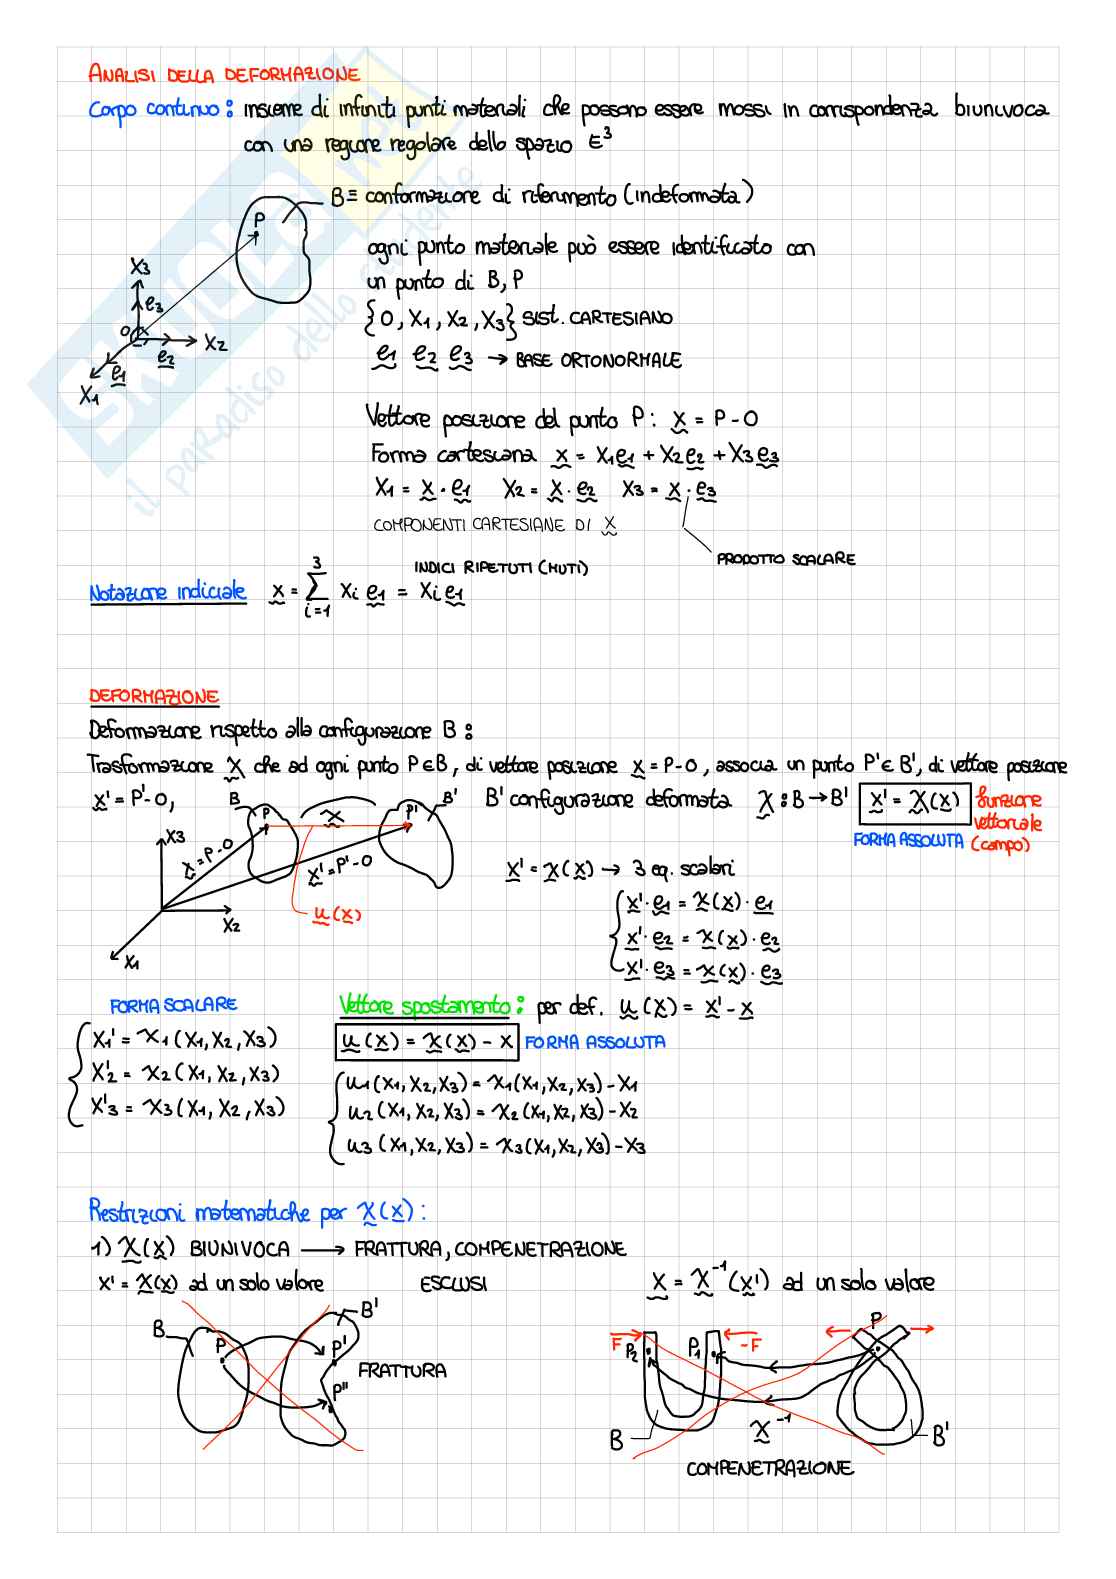 ANALISI DELLA DEFORMAZIONE
Corpo continuo: insieme di infiniti punti materiali che possono essere mossi in corrispondenza biunivoca
con una regione regolare dello spazio E³
B≡ conformazione di riferimento (indeformata)
P
ogni punto materiale può essere identificato con
un punto di B, P
X3
e3
O
X2
e2
e1
X1
{O, X1, X2, X3} SIST. CARTESIANO
e1 e2 e3 → BASE ORTONORMALE
Vettore posizione del punto P: x = P-O
Forma cartesiana x = X1e1 + X2e2 + X3e3
X1 = x · e1 X2 = x · e2 X3 = x · e3
COMPONENTI CARTESIANE DI x
PRODOTTO SCALARE
INDICI RIPETUTI (MUTI)
Notazione indiciale x = 3 ∑ i=1 Xi e1 = Xi e1
DEFORMAZIONE
Deformazione rispetto alla configurazione B:
Trasformazione χ che ad ogni punto P∈B, di vettore posizione x = P-O, associa un punto P'∈ B', di vettore posizione
x' = P'-O, B P χ P' B' B' configurazione deformata χ : B → B' x' = χ(x) funzione
vettoriale
FORMA ASSOLUTA (campo)
X3
x = P-O
x' = P'-O
u(x)
X2
X1
x' = χ(x) → 3 eq. scalari
x' · e1 = χ(x) · e1
x' · e2 = χ(x) · e2
x' · e3 = χ(x) · e3
FORMA SCALARE
X1' = χ1 (X1, X2, X3)
X'2 = χ2 (X1, X2, X3)
X'3 = χ3 (X1, X2, X3)
Vettore spostamento: per def. u(x) = x' - x
u(x) = χ(x) - x FORMA ASSOLUTA
u1 (X1, X2, X3) = χ1 (X1, X2, X3) - X1
u2 (X1, X2, X3) = χ2 (X1, X2, X3) - X2
u3 (X1, X2, X3) = χ3 (X1, X2, X3) - X3
Restrizioni matematiche per χ(x):
1) χ(x) BIUNIVOCA → FRATTURA, COMPENETRAZIONE
ESCLUSI
x' = χ(x) ad un solo valore
x = χ⁻¹(x') ad un solo valore
B P B' P' P''
FRATTURA
F P2 P1 -F P
B χ⁻¹ B'
COMPENETRAZIONE
SKUOLA.net
il paradiso dello studente